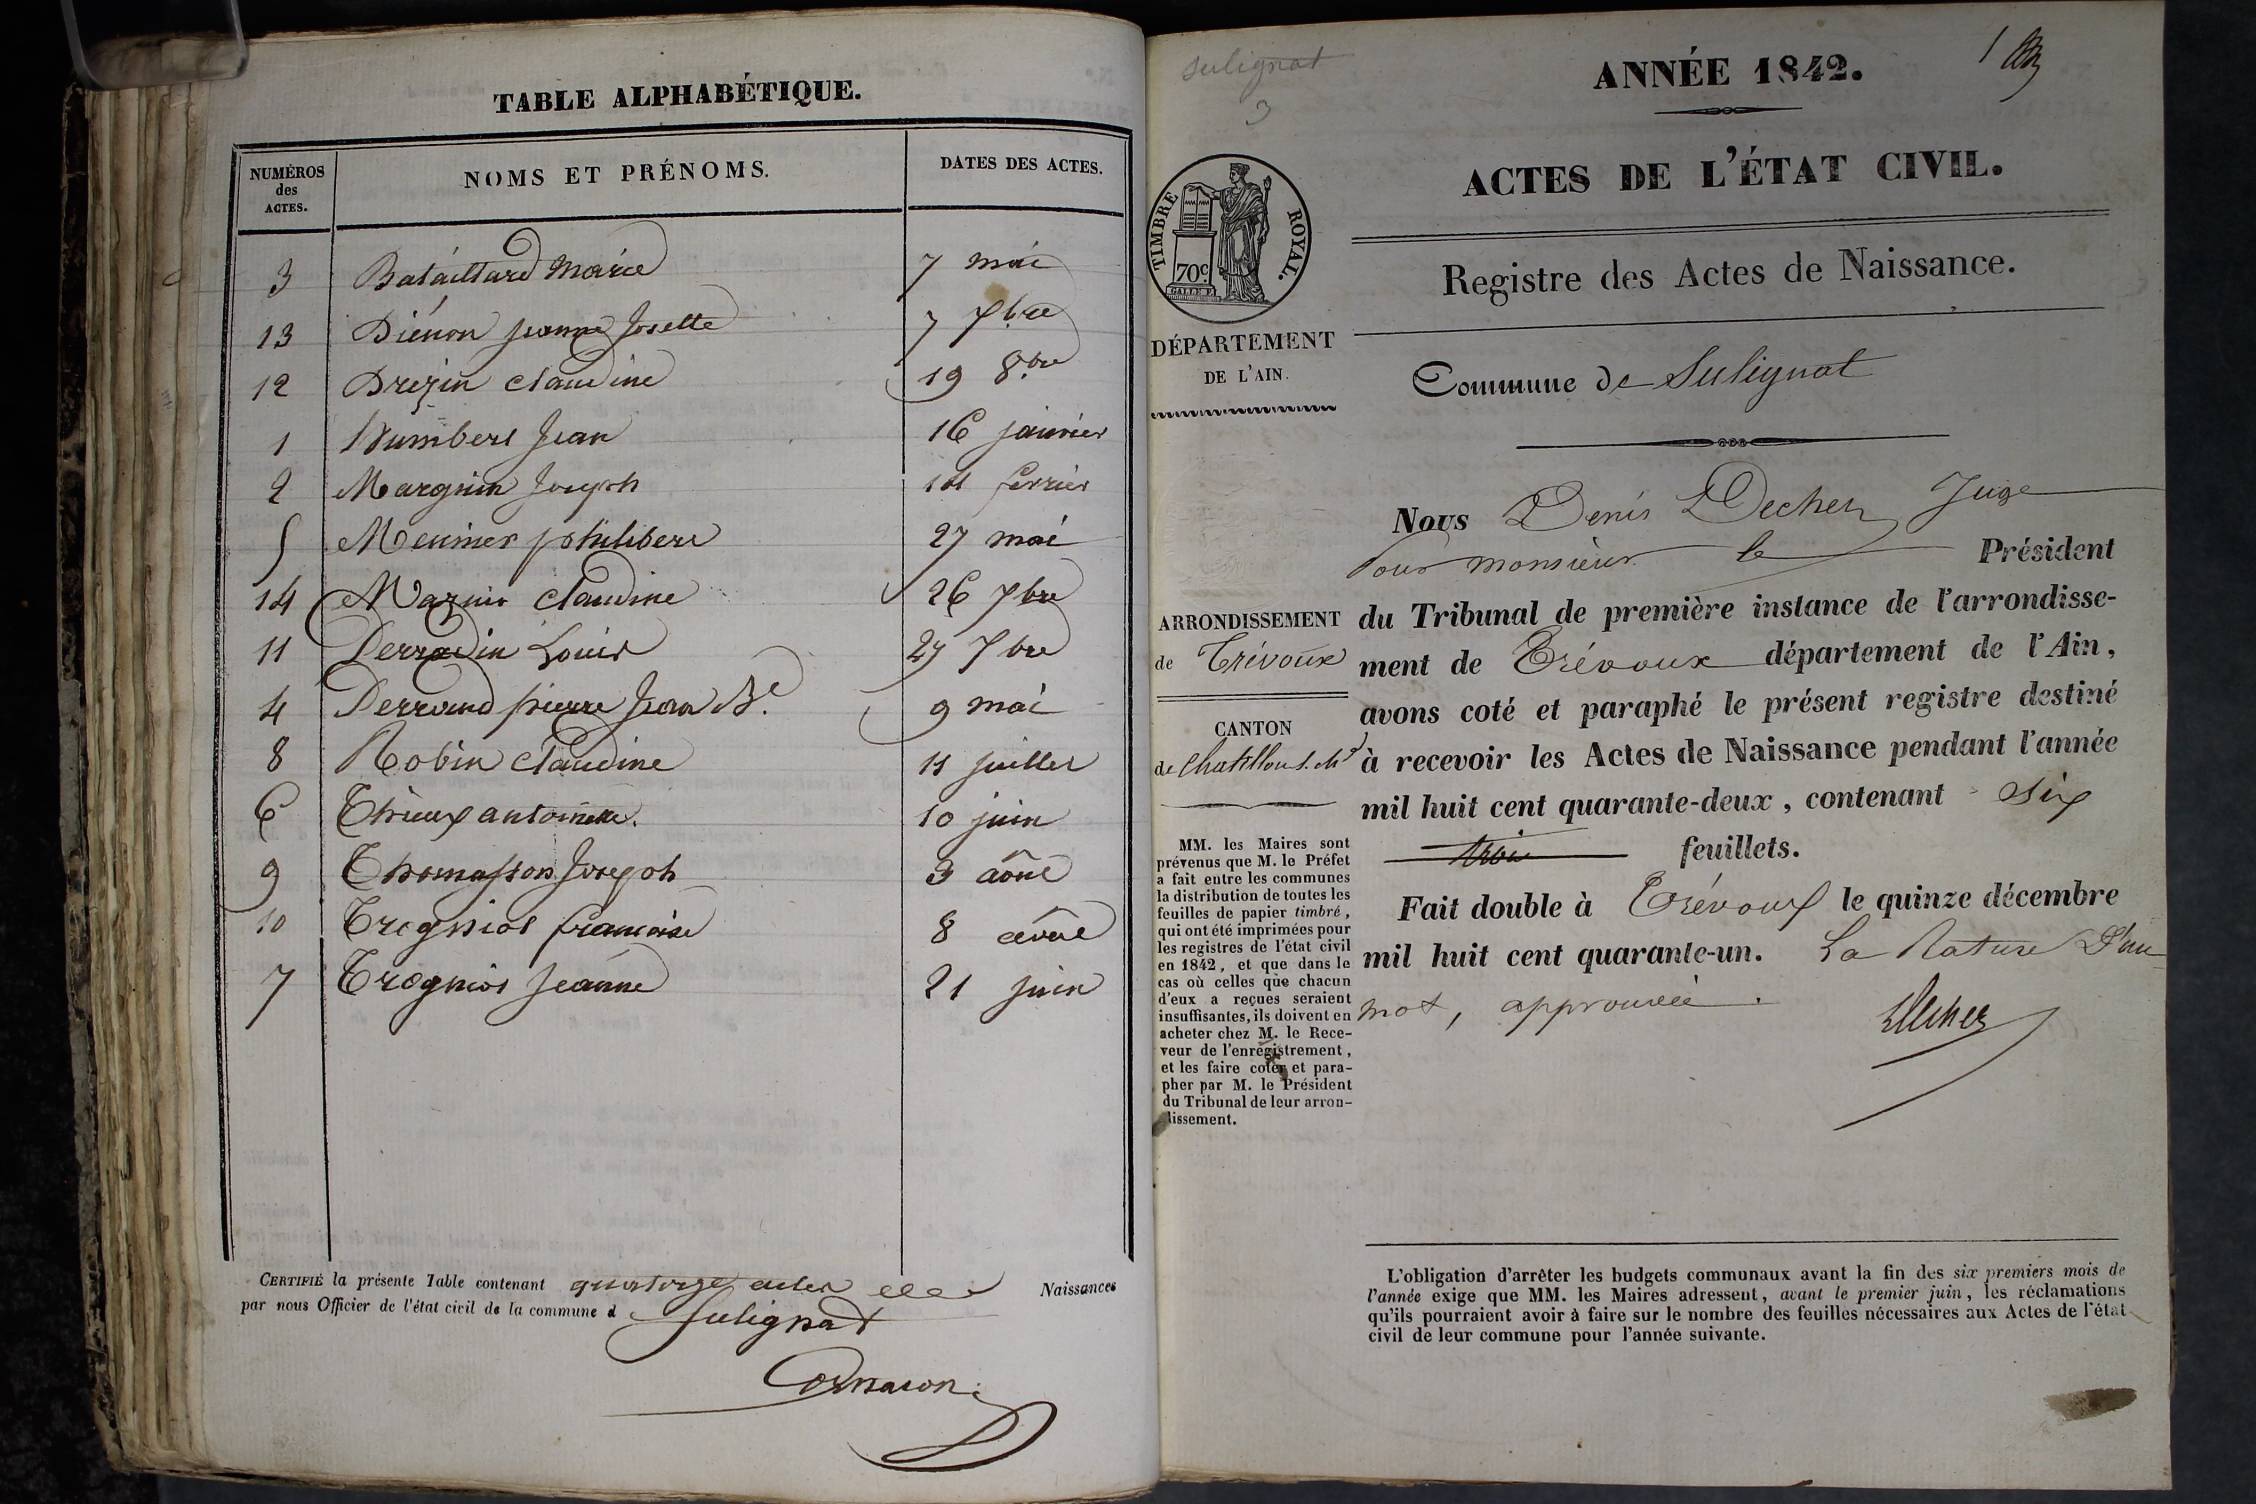 TABLE ALPHABÉTIQUE.
NUMÉROS des ACTES. NOMS ET PRÉNOMS. DATES DES ACTES.
3 Bataillard Marie 7 mai
13 Diénon Jeanne Josette 7 8bre
12 Drezin Claudine 19 8bre
1 Humbert Jean 16 janvier
2 Margnin Joseph 14 fevrier
5 Meunier philibert 27 mai
14 Mazuir Claudine 26 9bre
11 Perradin Louis 27 7bre
4 Perraud pierre Jean Bte 9 mai
8 Robin Claudine 11 juillet
6 Thieux antoinette. 10 juin
9 Thomasson Joseph 3 août
10 Trognios françoise 8 août
7 Trognios Jeanne 21 juin
CERTIFIÉ la présente Table contenant quatorze actes de Naissances
par nous Officier de l'état civil de la commune d Sulignat
Cornaton
Sulignat
3
1
ANNÉE 1842.
ACTES DE L'ÉTAT CIVIL.
Registre des Actes de Naissance.
TIMBRE ROYAL.
70c
DÉPARTEMENT
DE L'AIN.
Commune de Sulignat
Nous Denis Decher Juge
Pour monsieur le Président
ARRONDISSEMENT
de Trévoux
CANTON
de Chatillon s. cht
du Tribunal de première instance de l'arrondisse-
ment de Trévoux département de l'Ain,
avons coté et paraphé le présent registre destiné
à recevoir les Actes de Naissance pendant l'année
mil huit cent quarante-deux, contenant six
trois feuillets.
Fait double à Trévoux le quinze décembre
mil huit cent quarante-un. La Rature d'un
mot, approuvée.
Decher
MM. les Maires sont
prévenus que M. le Préfet
a fait entre les communes
la distribution de toutes les
feuilles de papier timbré,
qui ont été imprimées pour
les registres de l'état civil
en 1842, et que dans le
cas où celles que chacun
d'eux a reçues seraient
insuffisantes, ils doivent en
acheter chez M. le Rece-
veur de l'enregistrement,
et les faire coter et para-
pher par M. le Président
du Tribunal de leur arron-
dissement.
L'obligation d'arrêter les budgets communaux avant la fin des six premiers mois de
l'année exige que MM. les Maires adressent, avant le premier juin, les réclamations
qu'ils pourraient avoir à faire sur le nombre des feuilles nécessaires aux Actes de l'état
civil de leur commune pour l'année suivante.